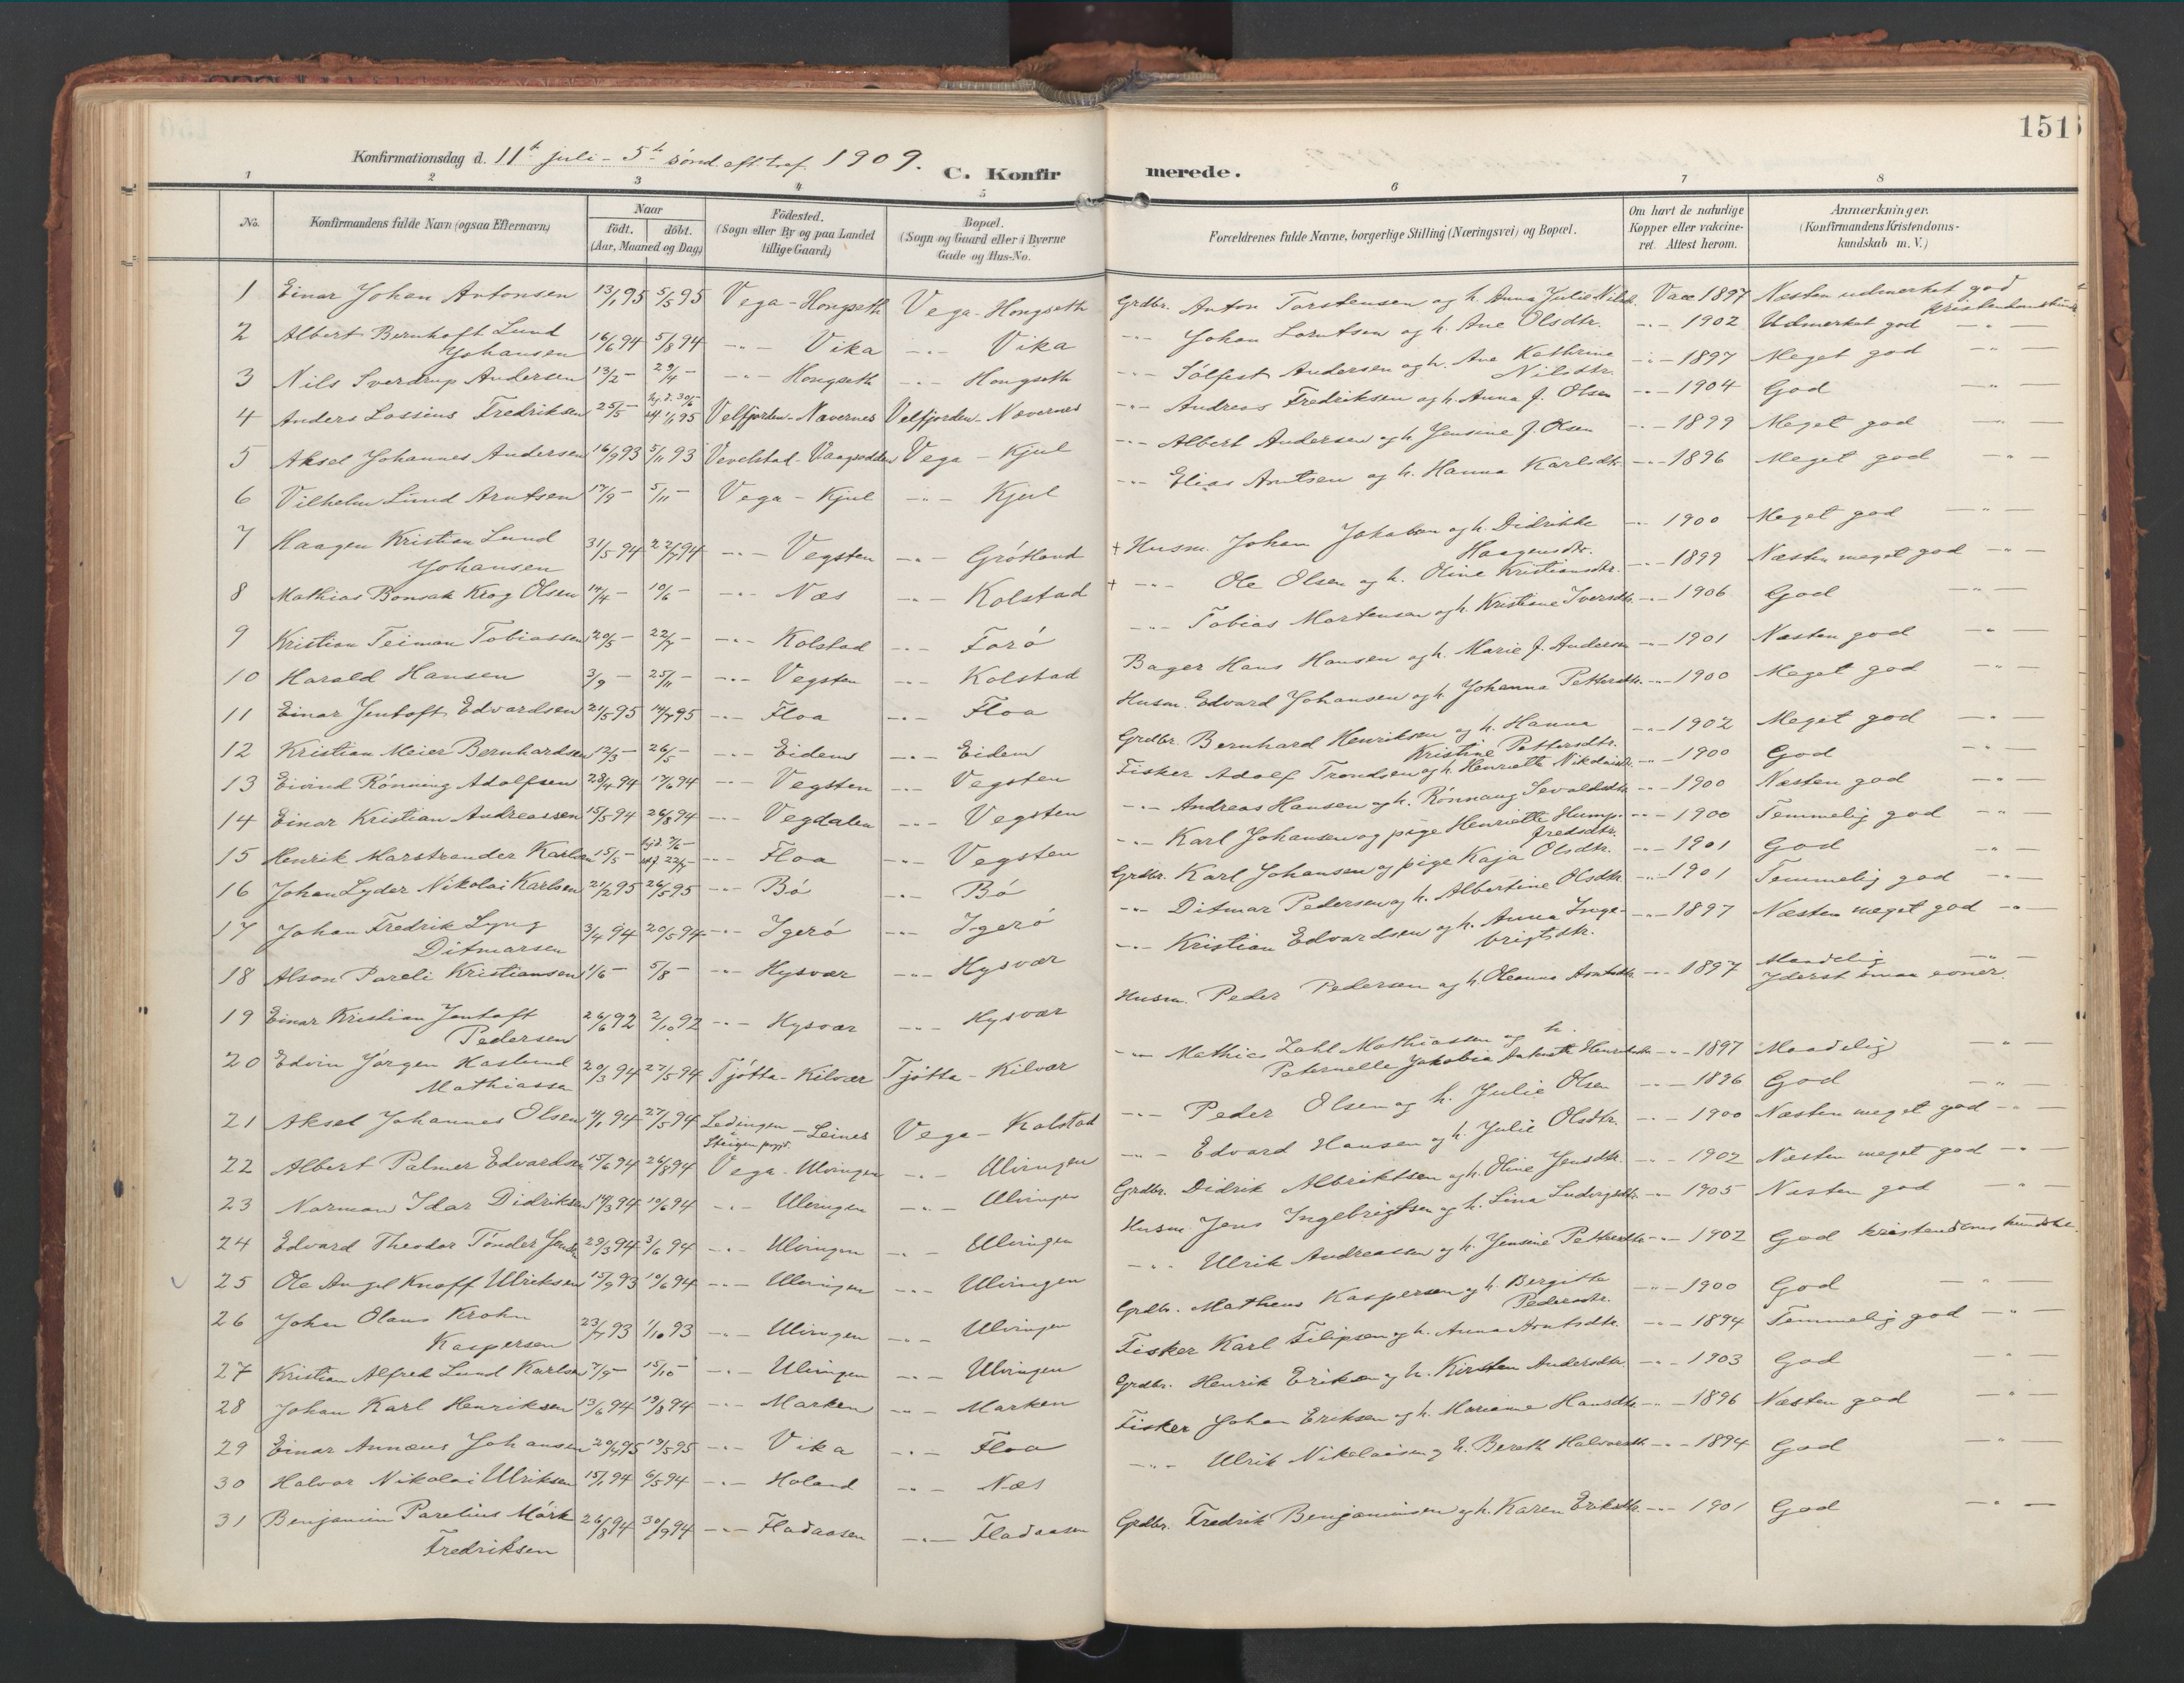 151
Konfirmationsdag d. 11te juli - 5te sönd. eft. tref. 1909.
C. Konfirmerede.
1 2 3 4 5 6 7 8
No. Konfirmandens fulde Navn (ogsaa Efternavn) Naar födt. döbt. (Aar, Maaned og Dag) Födested. (Sogn eller By og paa Landet tillige Gaard) Bopæl. (Sogn og Gaard eller i Byerne Gade og Hus-No. Forældrenes fulde Navne, borgerlige Stilling (Næringsvei) og Bopæl. Om havt de naturlige Kopper eller vakcineret. Attest herom. Anmærkninger. (Konfirmandens Kristendomskundskab m. V.)
1 Einar Johan Antonsen 13/1 95 5/5 95 Vega - Hongseth Vega - Hongseth Grdbr. Anton Torstensen og h. Anna Julie Nilsd. Vacc 1897 Næsten udmerket god kristendomskund
2 Albert Bernhoft Lund Johansen 16/6 94 5/8 94 -"- Vika -"- Vika -"- Johan Lorntsen og h. Ane Olsdtr. -"- 1902 Udmerket god -"-
3 Nils Sverdrup Andersen 13/2 - 29/4 - -"- Hongseth -"- Hongseth -"- Sölfest Andersen og h. Ane Kathrine Nilsdtr. -"- 1897 Meget god -"-
4 Anders Lossius Fredriksen 25/5 - hj. d. 30/6 - stf. 1/1 95 Velfjorden - Nævernes Velfjorden - Nævernes -"- Andreas Fredriksen og h. Anna J. Olsen -"- 1904 God -"-
5 Aksel Johannes Andersen 16/9 93 5/11 93 Vevelstad - Vaagsodden Vega - Kjul -"- Albert Andersen og h. Jensine J. Olsen -"- 1899 Meget god -"-
6 Vilhelm Lund Arntsen 17/9 - 5/11 - Vega - Kjul -"- Kjul -"- Elias Arntsen og h. Hanna Karlsdtr. -"- 1896 Meget god -"-
7 Haagen Kristian Lund Johansen 31/5 94 22/7 94 -"- Vegsten -"- Grötland + Husm. Johan Jakobsen og h. Didrikke Haagensdtr. -"- 1900 Meget god -"-
8 Mathias Bonsak Krog Olsen 14/4 - 10/6 - -"- Næs -"- Kolstad + -"- Ole Olsen og h. Oline Kristiansdtr. -"- 1899 Næsten meget god -"-
9 Kristian Teiman Tobiassen 20/5 - 22/7 - -"- Kolstad -"- Forö -"- Tobias Mortensen og h. Kristine Iversdtr. -"- 1906 God -"-
10 Harald Hansen 3/9 - 25/11 - -"- Vegsten -"- Kolstad Bager Hans Hansen og h. Marie J. Andersen -"- 1901 Næsten god -"-
11 Einar Jentoft Edvardsen 21/5 95 14/7 95 -"- Floa -"- Floa Husm. Edvard Johansen og h. Johanna Pettersdtr. -"- 1900 Meget god -"-
12 Kristian Meier Bernhardsen 12/3 - 26/5 - -"- Eidem -"- Eidem Grdbr. Bernhard Henriksen og h. Hanna Kristine Pettersdtr. -"- 1902 Meget god -"-
13 Eivind Rönning Adolfsen 28/4 94 17/6 94 -"- Vegsten -"- Vegsten Fisker Adolf Trondsen og h. Henriette Nikolaisdtr. -"- 1900 God -"-
14 Einar Kristian Andreassen 15/5 94 26/8 94 -"- Vegdalen -"- Vegsten -"- Andreas Hansen og h. Rönnaug Sevaldsdtr. -"- 1900 Næsten god -"-
15 Henrik Marstrander Karlsen 15/5 - hj. d. 7/6 - stf. 22/7 - -"- Floa -"- Vegsten -"- Karl Johansen og pige Henriette Humpfredsdtr. -"- 1900 Temmelig god -"-
16 Johan Lyder Nikolai Karlsen 21/2 95 26/5 95 -"- Bö -"- Bö Grdbr. Karl Johansen og pige Kaja Olsdtr. -"- 1901 God -"-
17 Johan Fredrik Lyng Ditmarsen 3/4 94 20/5 94 -"- Igerö -"- Igerö -"- Ditmar Pedersen og h. Albertine Olsdtr. -"- 1901 Temmelig god -"-
18 Alson Pareli Kristiansen 1/6 - 5/8 - -"- Hysvær -"- Hysvær -"- Kristian Edvardsen og h. Anna Ingebrigtsdtr. -"- 1897 Næsten meget god -"-
19 Einar Kristian Jentoft Pedersen 26/6 92 2/10 92 -"- Hysvær -"- Hysvær Husm. Peder Pedersen og h. Oleanna Arntsdtr. -"- 1897 Maadelig -"- Yderst smaa evner.
20 Edvin Jörgen Haslund Mathiassen 20/3 94 27/5 94 Tjötta - Kilvær Tjötta - Kilvær -"- Mathias Zahl Mathiassen og h. Peternelle Jakobia Henriksdtr. -"- 1897 Maadelig -"-
21 Aksel Johannes Olsen 4/1 94 27/5 94 Ledingen - Leines Steigen prgj. Vega - Kolstad -"- Peder Olsen og h. Julie Olsen -"- 1896 God -"-
22 Albert Palmer Edvardsen 15/6 94 26/8 94 Vega - Ulvingen -"- Ulvingen -"- Edvard Hansen og h. Julie Olsdtr. -"- 1900 Næsten meget god -"-
23 Norman Idar Didriksen 14/3 94 10/6 94 -"- Ulvingen -"- Ulvingen Grdbr. Didrik Albriktsen og h. Oline Jensdtr. -"- 1902 Næsten meget god -"-
24 Edvard Theodor Tönder Jensen 29/3 94 3/6 94 -"- Ulvingen -"- Ulvingen Husm. Jens Ingebrigtsen og h. Lina Ludvigsdtr. -"- 1905 Næsten god -"-
25 Ole Angel Knoff Ulriksen 15/9 93 10/6 94 -"- Ulvingen -"- Ulvingen -"- Ulrik Andreassen og h. Jensine Pettersdtr. -"- 1902 God kristendomskundsk.
26 John Olaus Krohn Kaspersen 23/7 93 1/10 93 -"- Ulvingen -"- Ulvingen Grdbr. Matheus Kaspersen og h. Bergitte Pedersdtr. -"- 1900 God -"-
27 Kristian Alfred Lund Karlsen 7/9 - 15/10 - -"- Ulvingen -"- Ulvingen Fisker Karl Filipsen og h. Anna Arntsdtr. -"- 1894 Temmelig god -"-
28 Johan Karl Henriksen 13/6 94 19/8 94 -"- Marken -"- Marken Grdbr. Henrik Eriksen og h. Kirsten Andersdtr. -"- 1903 God -"-
29 Einar Annæus Johansen 20/4 95 19/5 95 -"- Vika -"- Floa Fisker Johan Eriksen og h. Marianne Hansdtr. -"- 1896 Næsten god -"-
30 Halvor Nikolai Ulriksen 15/1 94 6/5 94 -"- Holand -"- Næs -"- Ulrik Nikolaisen og h. Bereth Halvorsdtr. -"- 1894 God -"-
31 Benjamin Parelius Mörk Fredriksen 26/8 94 30/9 94 -"- Fladaasen -"- Fladaasen Grdbr. Fredrik Benjaminsen og h. Karen Eriksdtr. -"- 1901 God -"-